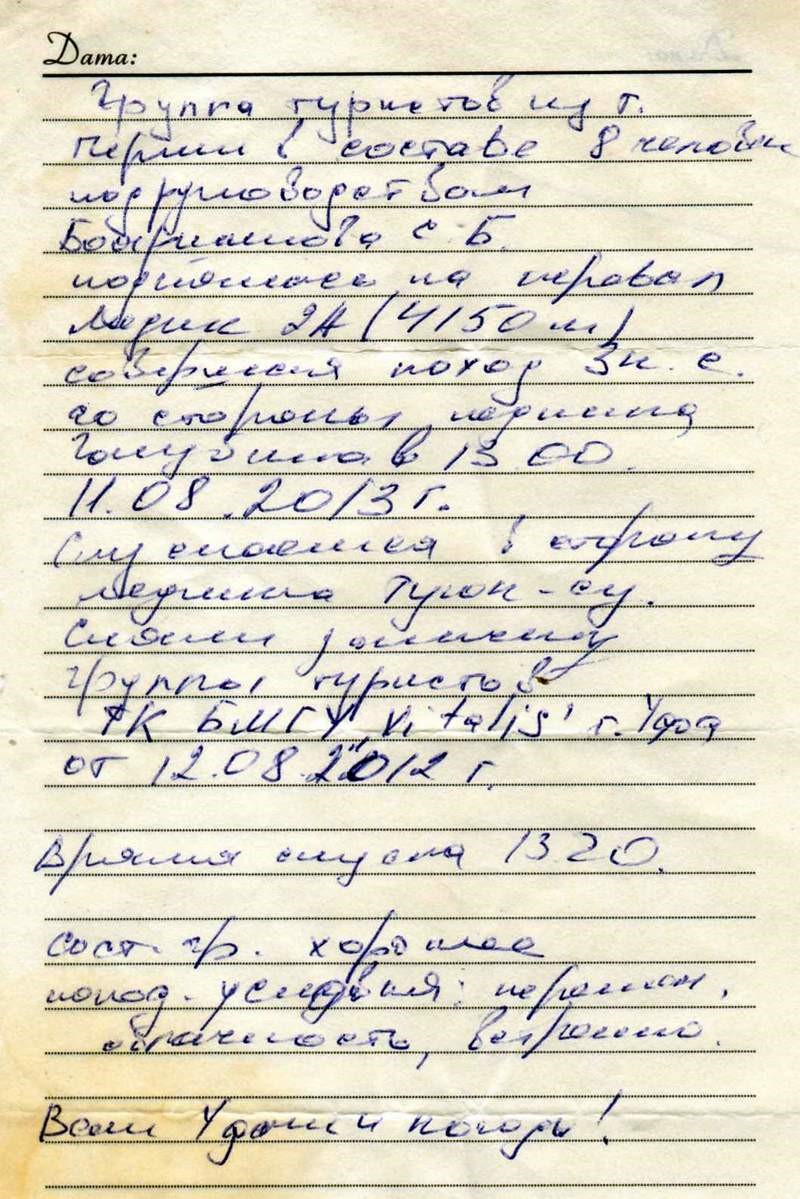 Дата:
Группа туристов из г.
Перми в составе 8 человек
под руководством
С. Б.
поднялась на перевал
2А (4150 м)
совершая поход 3 к. с.
со стороны ледника
Голубина в 13 00.
11.08.2013 г.
Спускаемся в сторону
ледника Туюк-су.
Сняли записку
группы туристов
ТК БМГУ "Vitalis" г. Уфа
от 12.08.2012 г.
Время спуска 13 20.
Сост. гр. хорошее
погод. условия: перемен.
облачность, ветрено.
Всем Удачи и погоды!